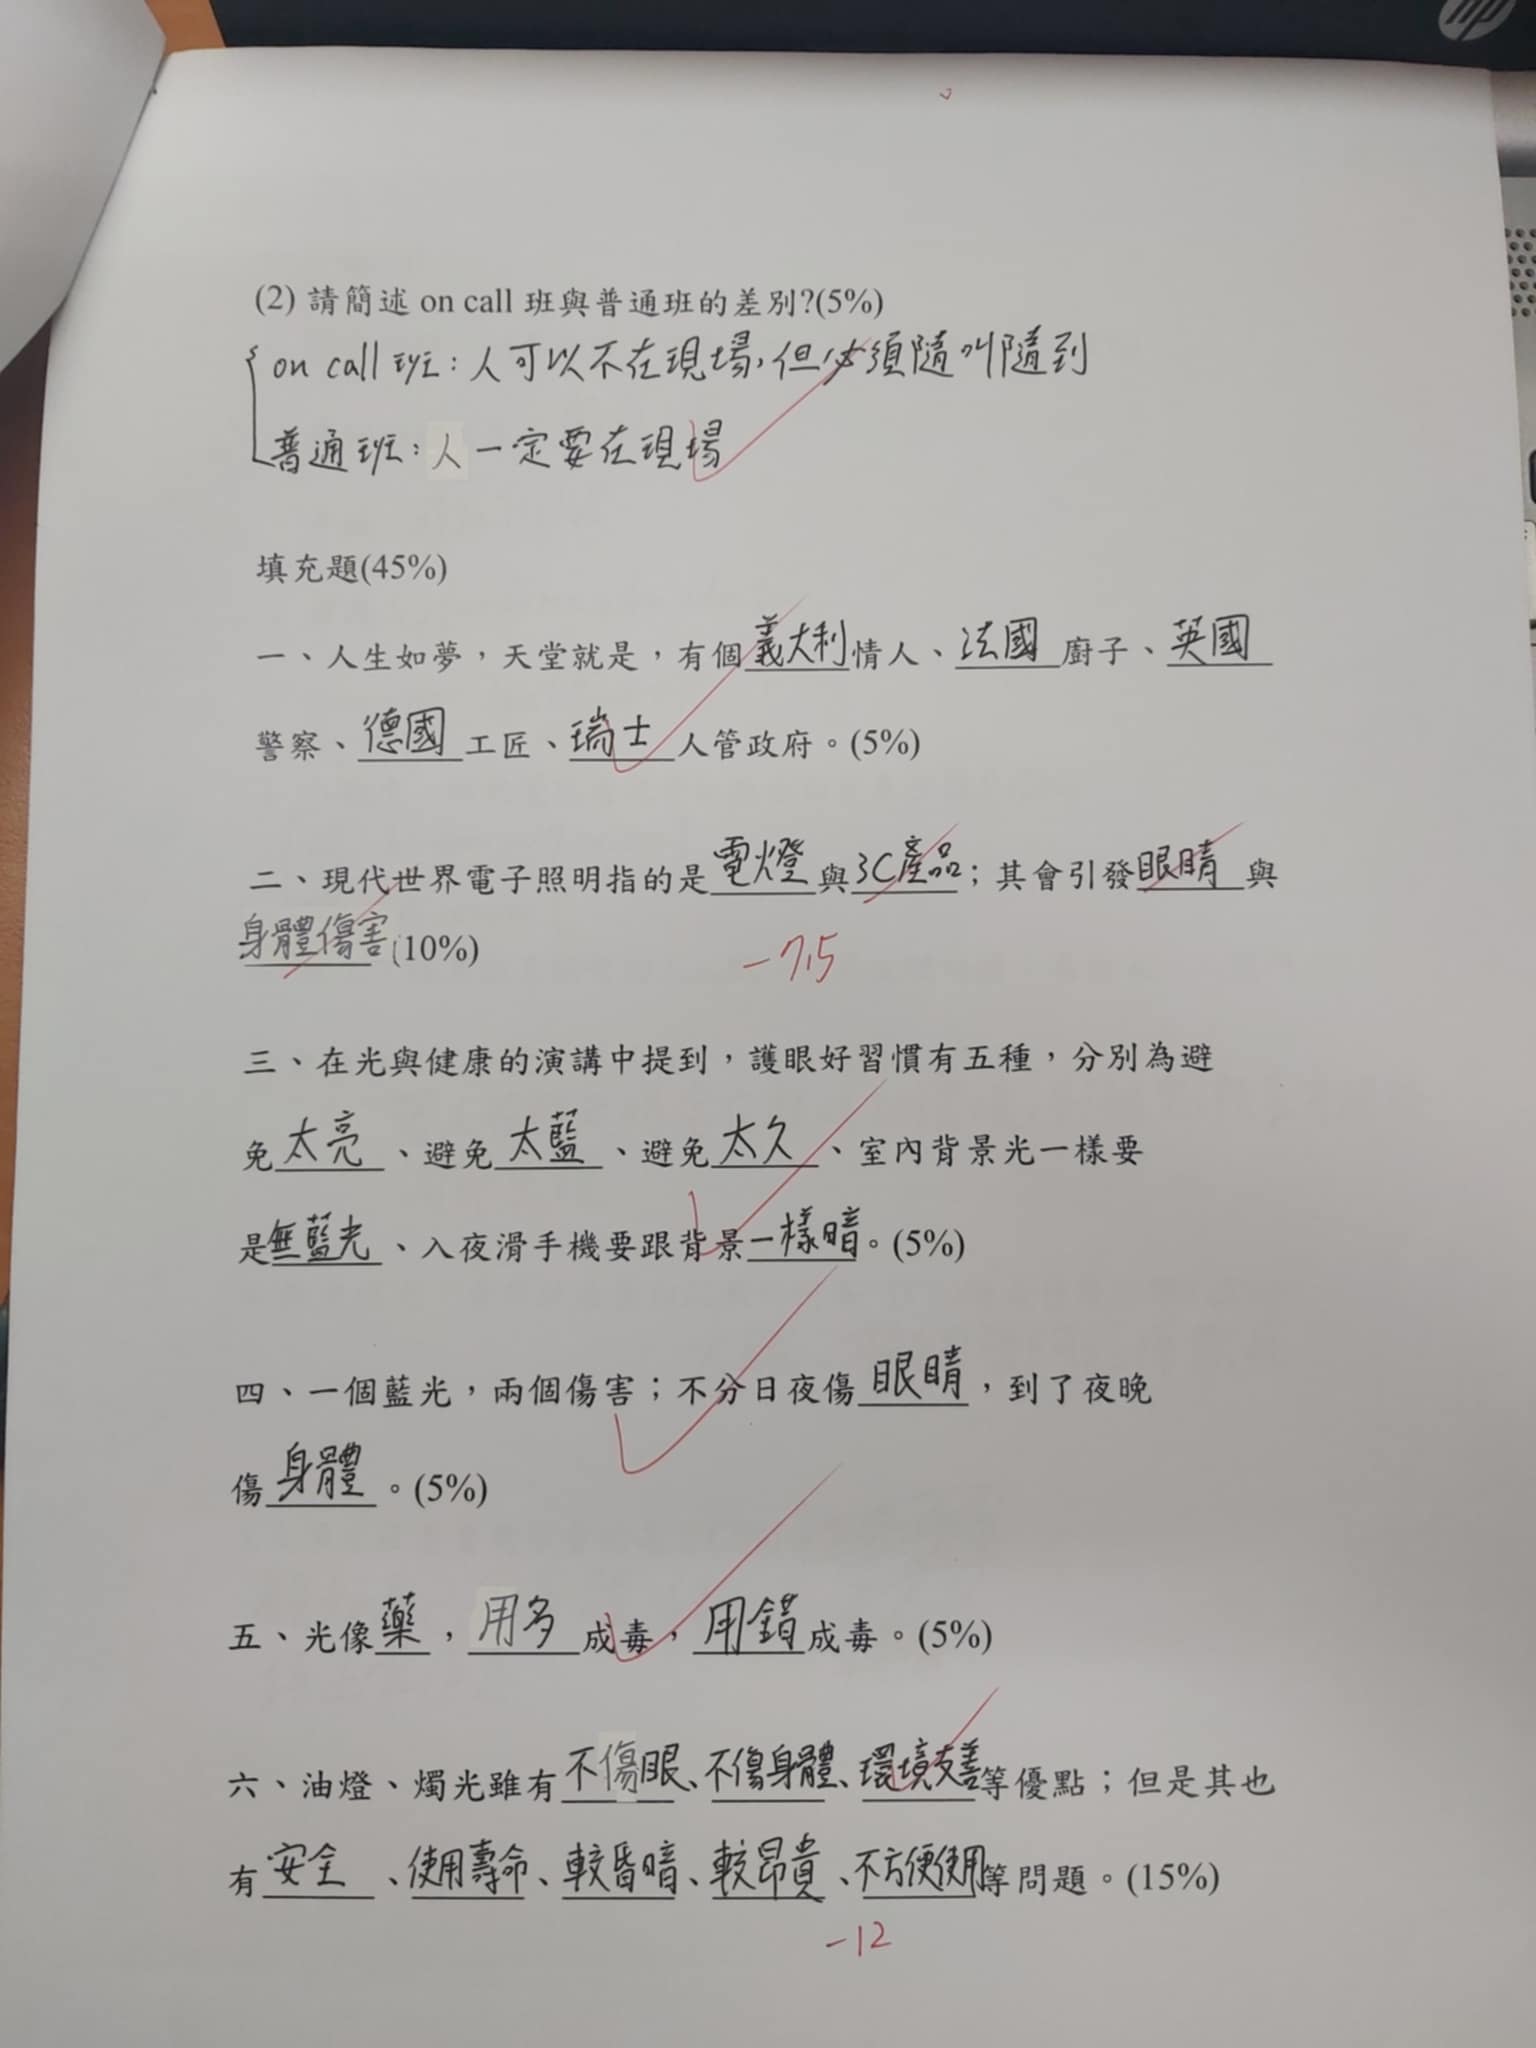 hp
(2) 請簡述 on call 班與普通班的差別?(5%)
on call 班：人可以不在現場，但必須隨叫隨到
普通班：人一定要在現場
填充題(45%)
一、人生如夢，天堂就是，有個義大利情人、法國廚子、英國
警察、德國工匠、瑞士人管政府。(5%)
二、現代世界電子照明指的是電燈與3C產品；其會引發眼睛與
身體傷害(10%)
-7.5
三、在光與健康的演講中提到，護眼好習慣有五種，分別為避
免太亮、避免太藍、避免太久、室內背景光一樣要
是無藍光、入夜滑手機要跟背景一樣暗。(5%)
四、一個藍光，兩個傷害；不分日夜傷眼睛，到了夜晚
傷身體。(5%)
五、光像藥，用多成毒，用錯成毒。(5%)
六、油燈、燭光雖有不傷眼、不傷身體、環境友善等優點；但是其也
有安全、使用壽命、較昏暗、較昂貴、不方便使用等問題。(15%)
-12